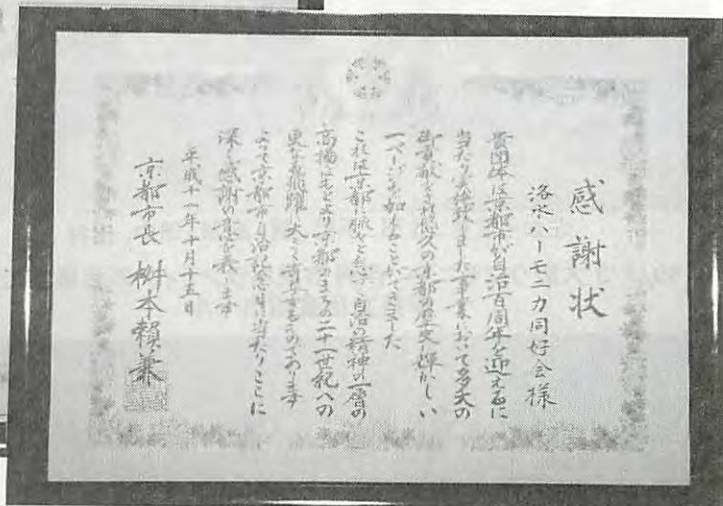 感謝状
洛水ハーモニカ同好会様
貴団体は京都市が自治百周年を迎えるに
当たり実施致しました事業において多大の
御貢献をされ悠久の京都の歴史に輝かしい
一ページを加えることができました
これは京都に脈々と息づく自治の精神の一層の
高揚はもとより京都のまちの二十一世紀への
更なる飛躍に大きく寄与するものであります
よって京都市自治記念日に当たりここに
深く感謝の意を表します
平成十一年十月十五日
京都市長 桝本頼兼